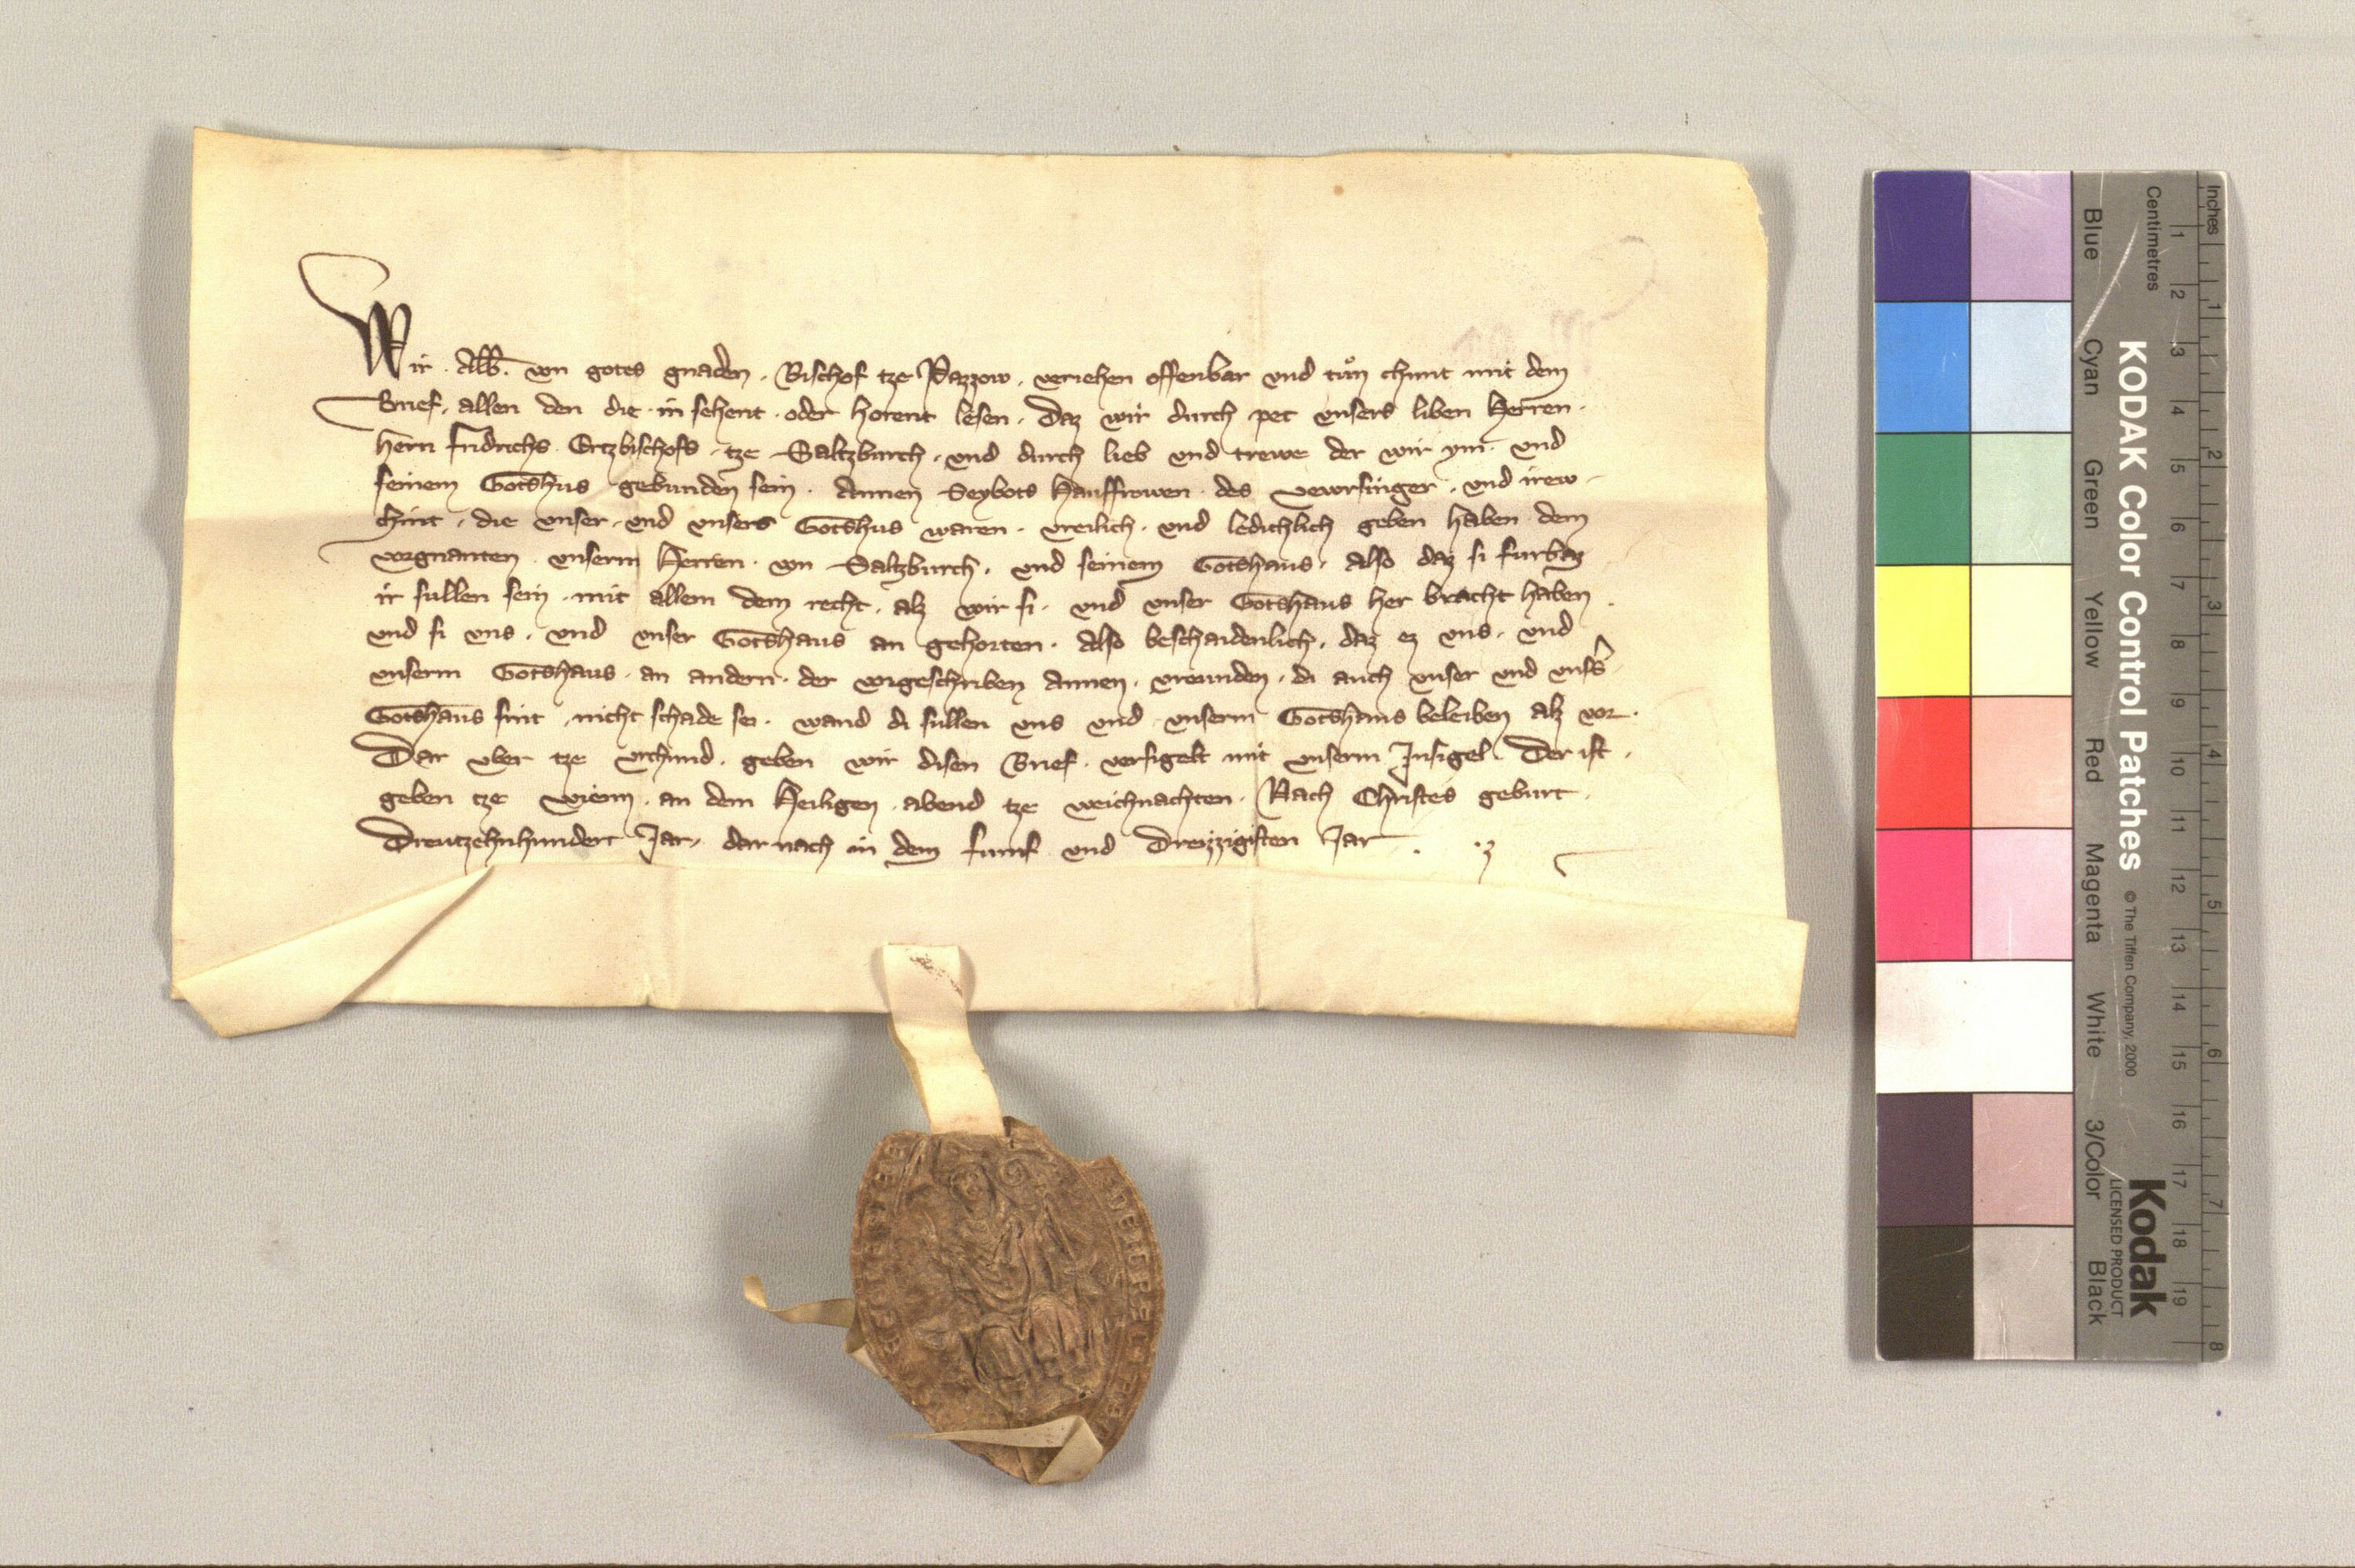 Wir . Alb. von gotes gnaden . Bischof tze Pazzow . veriehen offenbar vnd tuͦn chunt mit dem
Brief . allen den die in sehent . oder horent lesen . Daz wir durch pet vnsers liben Herren .
hern Fridrichs Ertzbischofs . tze Saltzburch . vnd durch lieb vnd trewe der wir ym . vnd
seinem Gotshus gebunden sein . Annen Seybots Hausfrowen des vewrsinger . vnd irew
chint . die vnser . vnd vnsers Gotshus waren . vreilich . vnd ledichlich geben haben dem
vorgnanten . vnserm Herren . von Saltzburch . vnd seinem Gotshaus . Also daz si furbaz
ir sullen sein . mit allem dem recht . alz wir si . vnd vnser Gotshaus her bracht haben .
vnd si vns . vnd vnser Gotshaus an gehorten . Also beschaidenlich . daz ez vns . vnd
vnserm Gotshaus . an andern . der vorgeschriben Annen . vreunden . di auch vnser vnd vnsers
Gotshaus sint . nicht schade sei . wand di sullen vns vnd vnserm Gotshaus beleiben alz vor .
Dar vber tze vrchund . geben wir disen Brief . versigelt mit vnserm Insigel . Der ist .
geben tze Wienn . an dem Heiligen . abend tze weichnachten . Nach Christes geburt .
Dreutzehnhundert Jar , dar nach in dem fumf vnd Dreizzigisten Jar .
KODAK Color Control Patches
© The Tiffen Company, 2000
Kodak
LICENSED PRODUCT
Blue Cyan Green Yellow Red Magenta White 3/Color Black
Centimetres 1 2 3 4 5 6 7 8 9 10 11 12 13 14 15 16 17 18 19
Inches 1 2 3 4 5 6 7 8